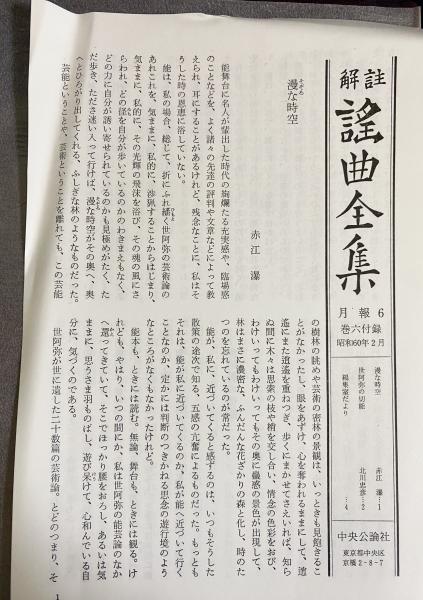 解註
謡曲全集
月報6
巻六付録
昭和60年2月
漫な時空 赤江 瀑…1
世阿弥の切能 北川忠彦…2
編集室だより …4
中央公論社
東京都中央区
京橋2-8-7
漫な時空
そぞろ
赤江 瀑
能舞台に名人が輩出した時代の絢爛たる充実感や、臨場感
のことなどを、よく諸々の先達の評判や文章などによって教
えられ、耳にすることがあるけれど、残念なことに、私はそ
うした時の恩恵に浴していない。
能は、私の場合、総じて、折にふれ繙く世阿弥の芸術論の
あれこれを、気ままに、私的に、渉猟することからはじまり、
気ままに、私的に、その光輝の飛沫を浴び、その魂の風にさ
らわれ、どの径を自分が歩いているのかのわきまえもなく、
どの力に自分が誘い寄せられているのかも見極めがたく、た
だ歩き、たださ迷い入って行けば、漫な時空がその奥へ、奥
へとひろがり出してくれる、ふしぎな林のようなものだった。
芸能ということや、芸術ということを離れても、この芸能
の樹林の眺めや芸術の密林の景観は、いっときも見飽きるこ
とがなかったし、眼をあずけ、心を奪われるままにして、逍
遥にまた逍遥を重ねつぎ、歩くにまかせてさえいれば、知ら
ぬ間に木々は思索の枝や梢を交し合い、情念の色彩をおび、
わけいってもわけいってもその奥に蠱惑の景色が出現して、
林はまさに濃密な、ふんだんな花ざかりの森と化し、時のた
つのを忘れているのが常だった。
能が、私に、近づいてくると感ずるのは、いつもそうした
散策の途次で知る、五感の亢奮によるものだった。もっとも
それは、能が私に近づいてくるのか、私が能へ近づいて行く
ことなのか、定かには判断のつきかねる思念の遊行境のよう
なところがなくもなかったけれど。
能本も、ときには読む。無論、舞台も、ときには観る。け
れども、やはり、いつの間にか、私は世阿弥の能芸論のなか
へ還ってきていて、そこでほっかり腰をおろし、あるいは気
ままに、思うさま羽ものばし、遊び呆けて、心和んでいる自
分に、気づくのである。
世阿弥が世に遺した二十数篇の芸術論。とどのつまり、そ
1